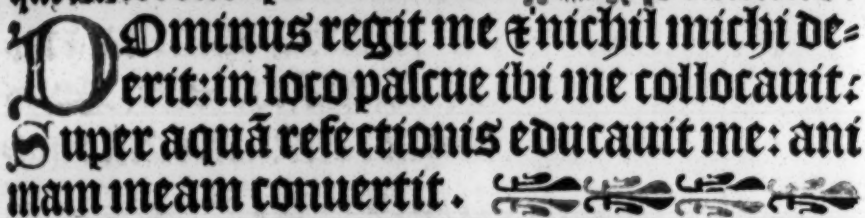 DOminus regit me ⁊ nichil michi de⸗
erit: in loco paſcue ibi me collocauit:
Super aquã refectionis educauit me: ani
mam meam conuertit.